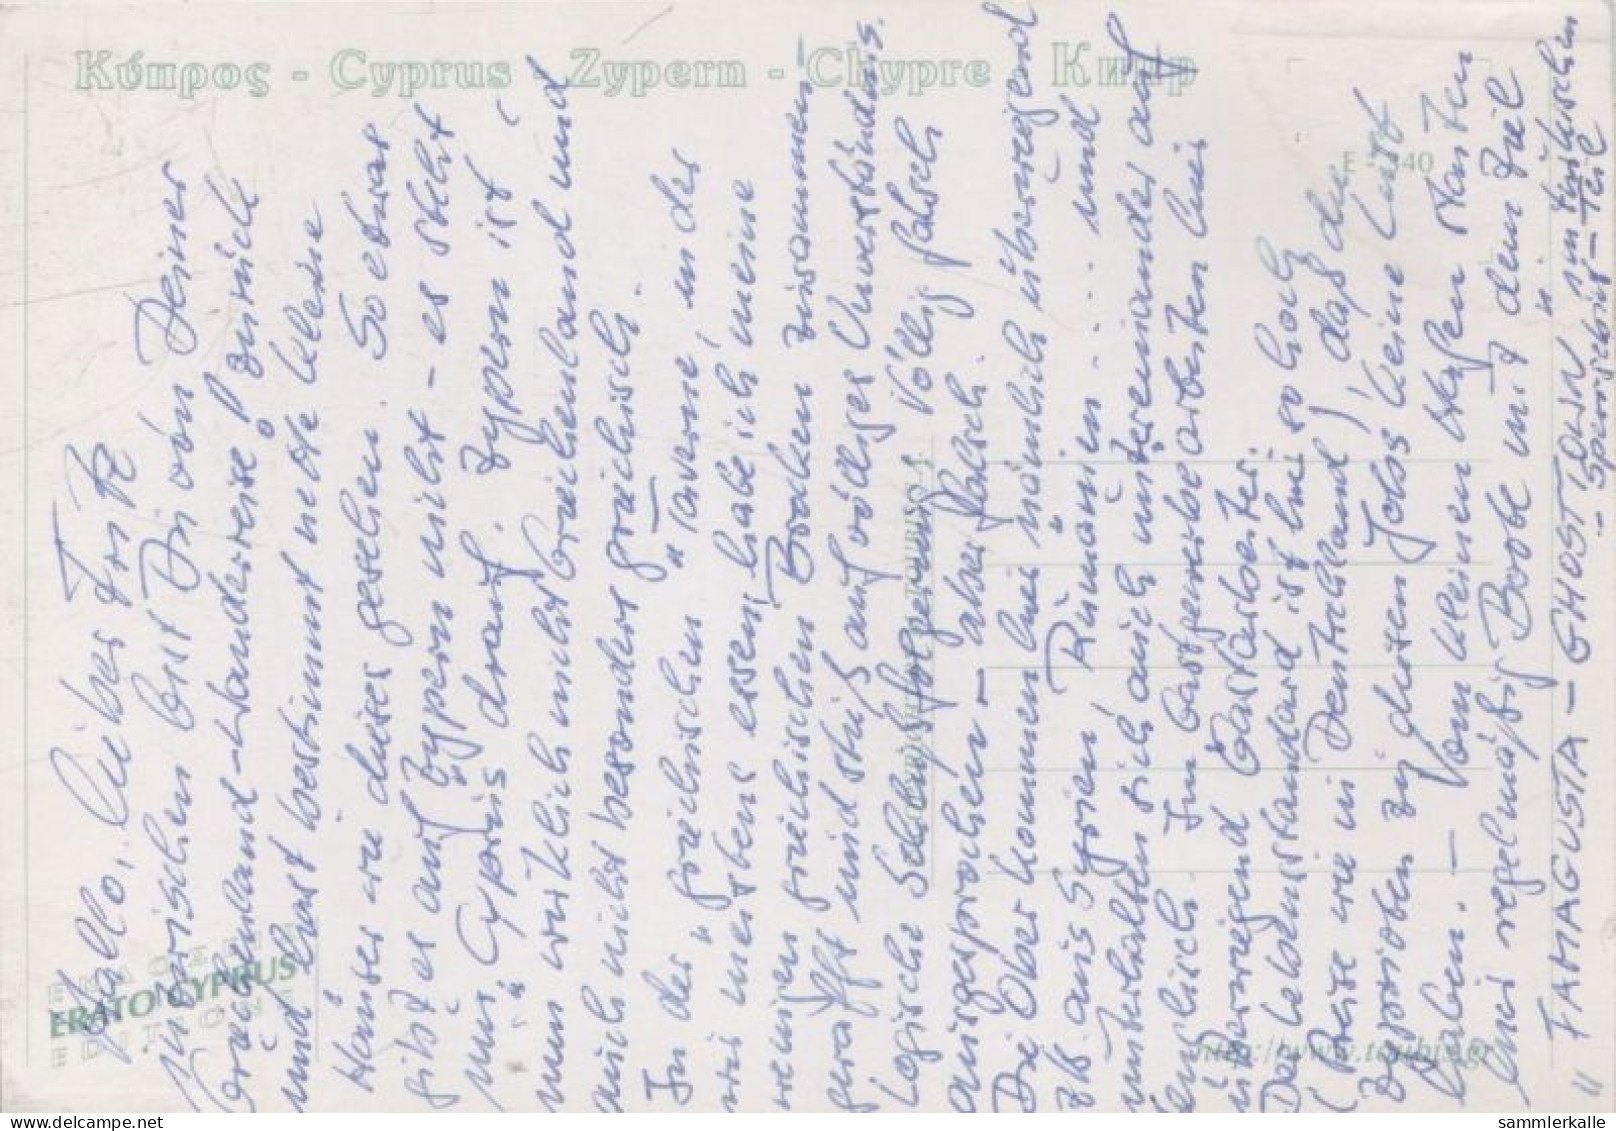 Κύπρος - Cyprus Zypern - Chypre Кипр
E 40
ERATO CYPRUS
EDITIONS
http://www.toubis.gr
Hallo, lieber Fritz
inzwischen bist Du von Deiner
Griechenland-Wanderreise zurück
und hast bestimmt nette kleine
Häuser wie dieses gesehen. So etwas
gibt es auf Zypern nicht - es steht
nur Cypris drauf. Zypern ist
nun wirklich nicht Griechenland und
auch nicht besonders griechisch.
In der "griechischen" Taverne, in der
wir meistens essen, habe ich meine
weinigen griechischen Brocken zusammen-
gerafft und stieß auf völliges Unverständnis.
Logische Schlußfolgerung: Völlig falsch
ausgesprochen - aber falsch.
Die Ober kommen hier nämlich überwiegend
zb. aus Syrien, Rumänien .... und
unterhalten sich auch untereinander auf
Englisch. Im Gastgewerbe arbeiten hier
überwiegend Gastarbeiter.
Der Lebensstandard ist hier so hoch
(Preise wie in Deutschland), daß die
Zyprioten zu diesen Jobs keine Lust
haben. - Vom kleinen Hafen starten
hier regelmäßig Boote mit dem Ziel
FAMAGUSTA - GHOSTTOWN im türkischen
- Sperrgebiet - Teil